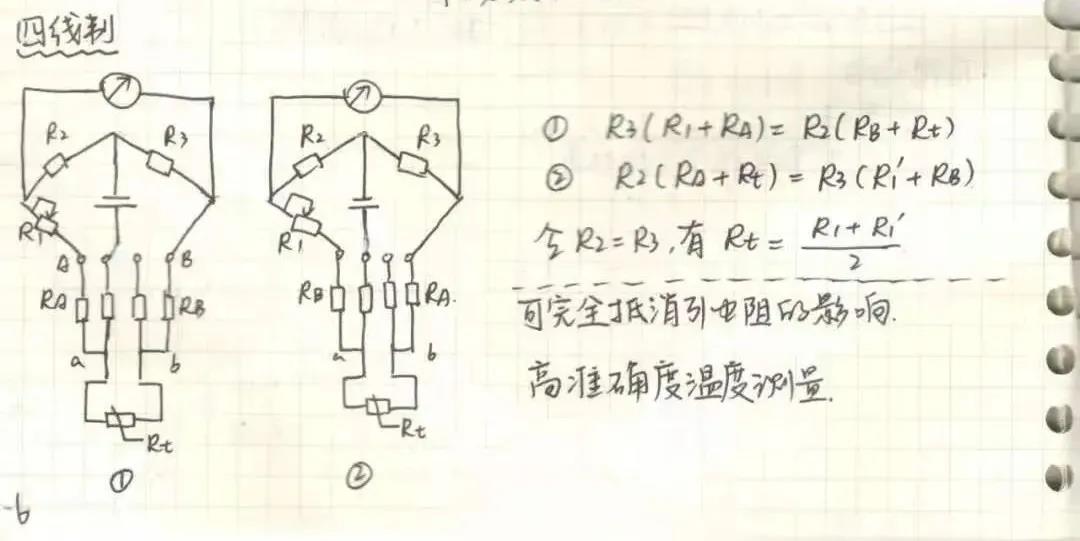 四线制
R2 R3
R1
A B
RA RB
a b
Rt
①
R2 R3
R1
RB RA.
a b
Rt
②
① R3(R1+RA)=R2(RB+Rt)
② R2(RA+Rt)=R3(R1'+RB)
令R2=R3,有 Rt= (R1+R1')/2
可完全抵消引电阻的影响.
高准确度温度测量.
-6